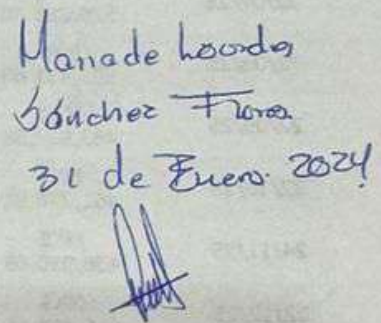 Maria de Lourdes
Sánchez Flores
31 de Enero 2024